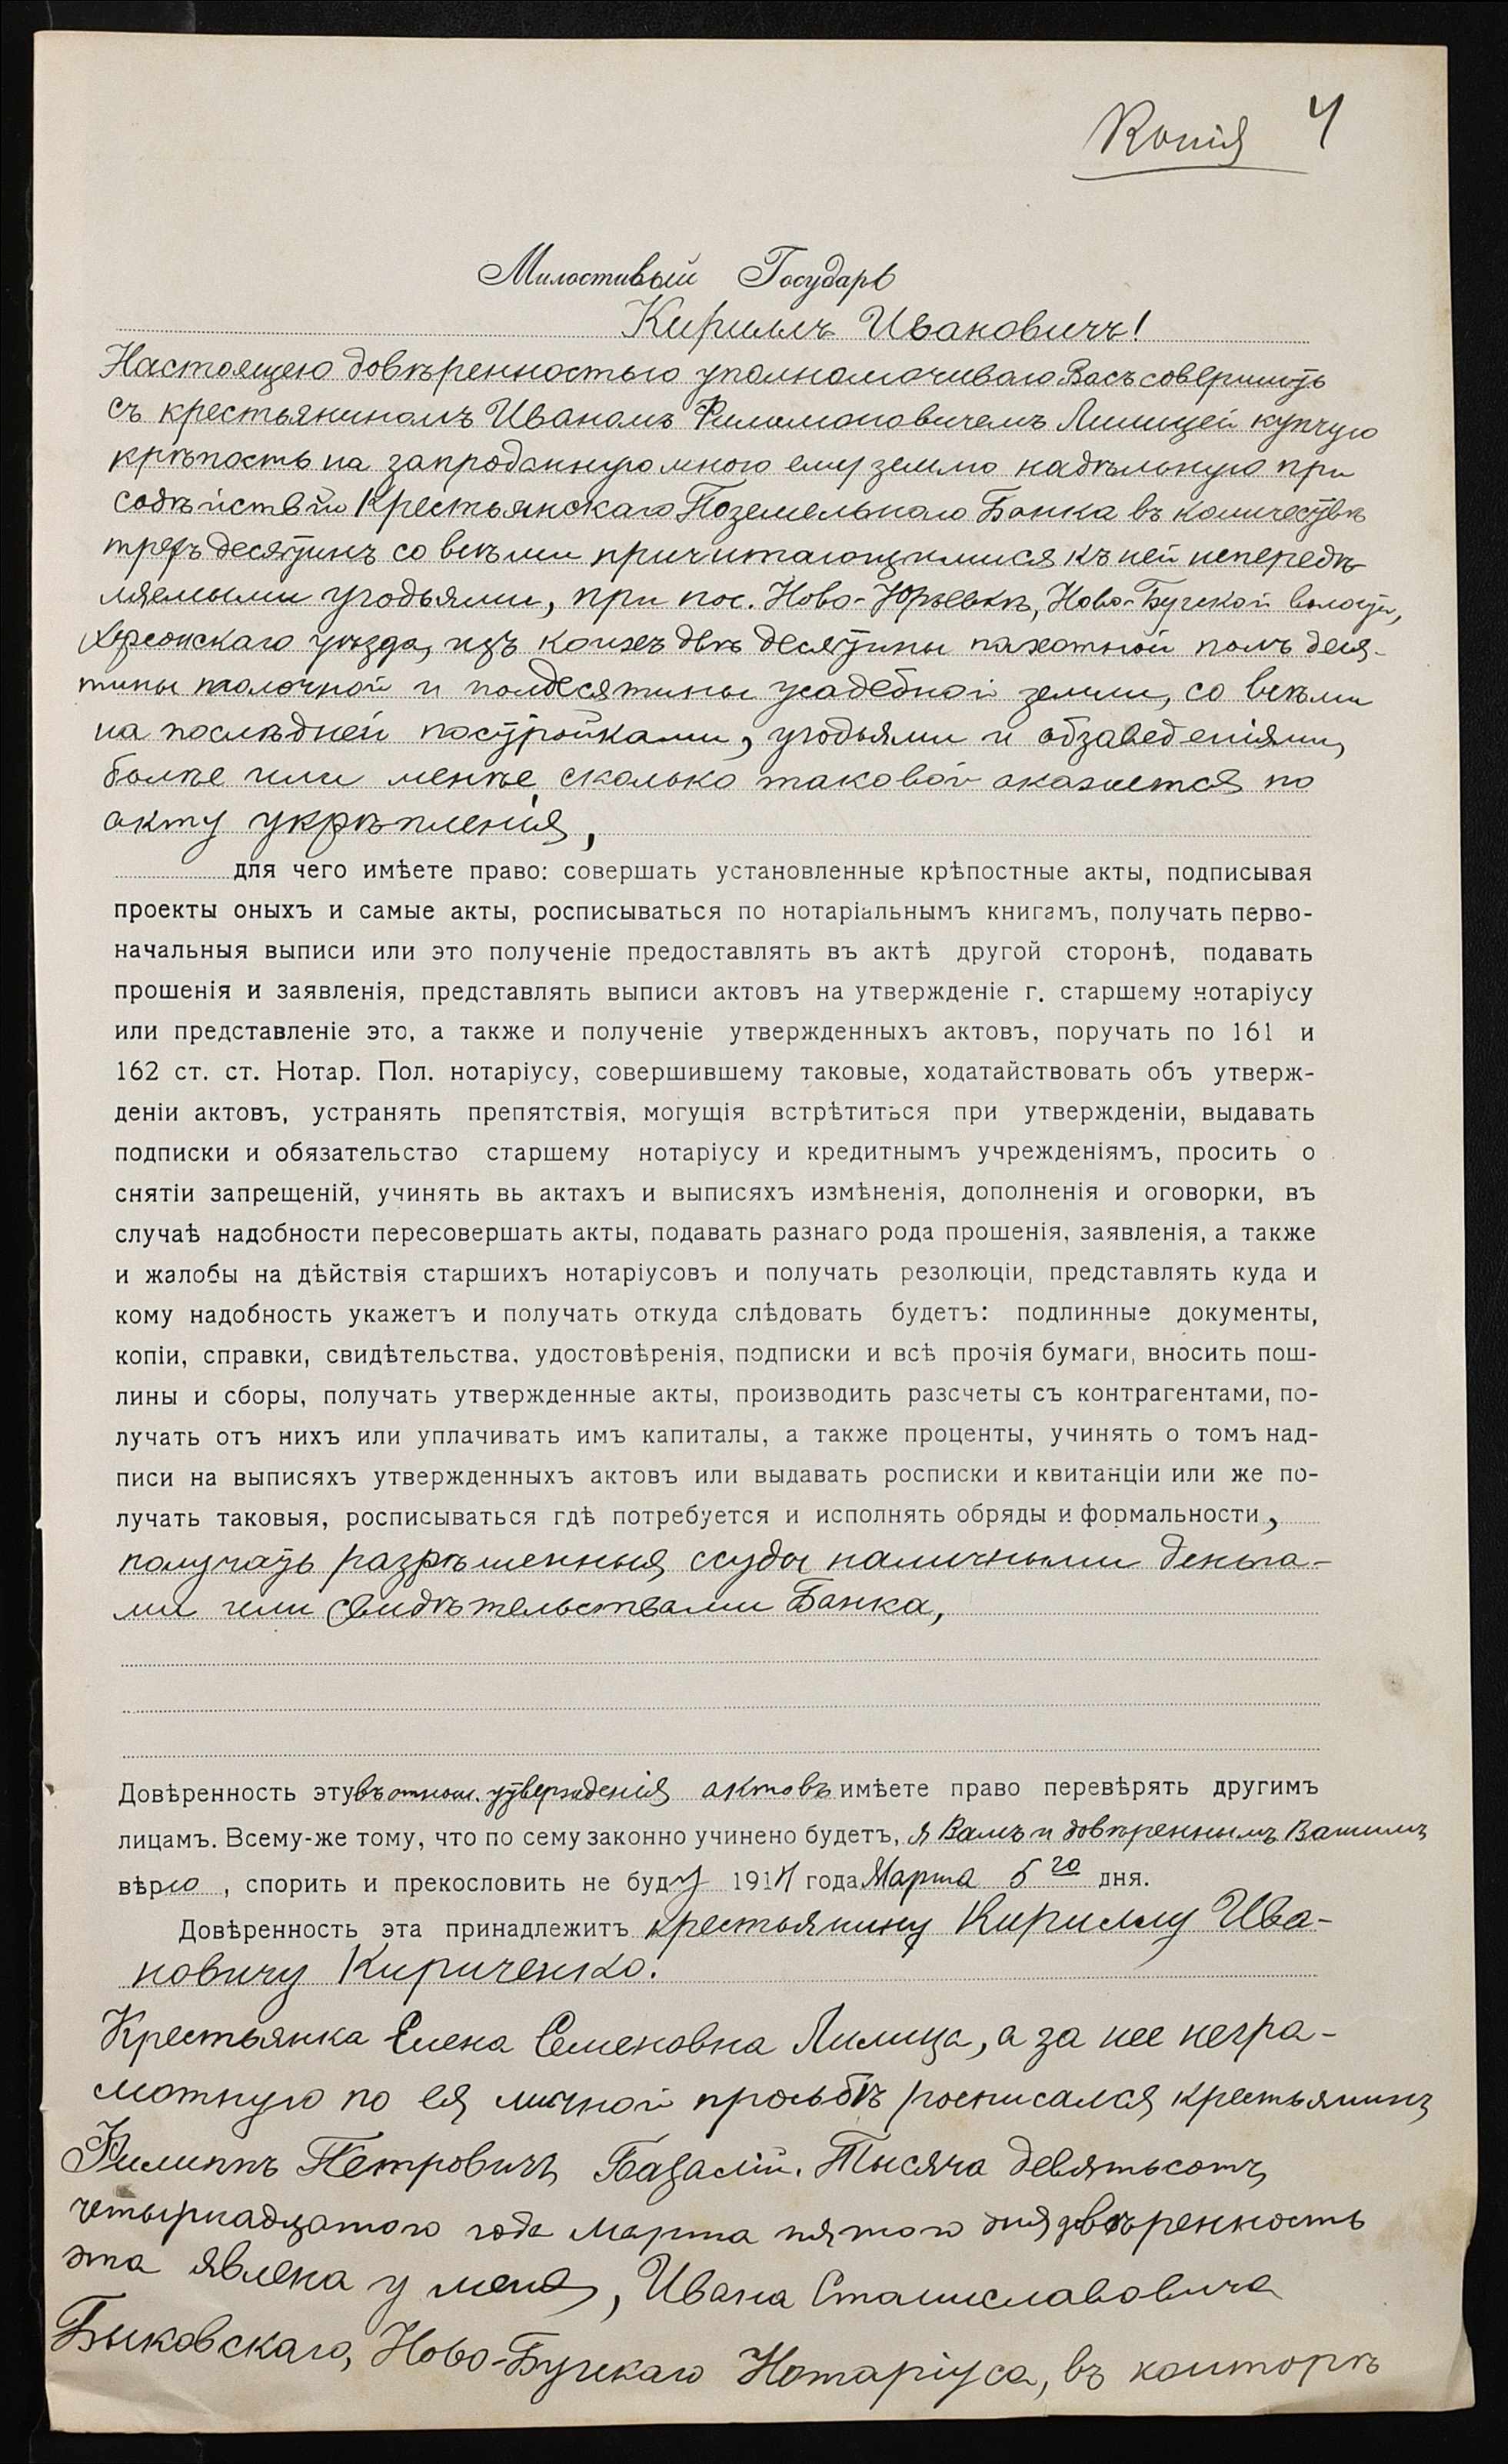 Копія 4
Милостивый Государь
Кириллъ Ивановичъ!
Настоящею довѣренностью уполномочиваю Васъ совершить
съ крестьяниномъ Иваномъ Филимоновичемъ Лилицей купчую
крѣпость на запроданную мною ему землю надѣльную при
содѣйствіи Крестьянскаго Поземельнаго Банка въ количествѣ
трехъ десятинъ со всѣми причитающимися къ ней непередѣ-
ляемыми угодьями, при пос. Ново-Юрьевкѣ, Ново-Бугской волости,
Херсонскаго уѣзда, изъ коихъ двѣ десятины пахотной полъ деся-
тины толочной и полдесятины усадебной земли, со всѣми
на послѣдней постройками, угодьями и обзаведеніями,
болѣе или менѣе сколько таковой окажется по
акту укрѣпленія,
для чего имѣете право: совершать установленные крѣпостные акты, подписывая
проекты оныхъ и самые акты, росписываться по нотаріальнымъ книгамъ, получать перво-
начальныя выписи или это полученіе предоставлять въ актѣ другой сторонѣ, подавать
прошенія и заявленія, представлять выписи актовъ на утвержденіе г. старшему нотаріусу
или представленіе это, а также и полученіе утвержденныхъ актовъ, поручать по 161 и
162 ст. ст. Нотар. Пол. нотаріусу, совершившему таковые, ходатайствовать объ утверж-
деніи актовъ, устранять препятствія, могущія встрѣтиться при утвержденіи, выдавать
подписки и обязательство старшему нотаріусу и кредитнымъ учрежденіямъ, просить о
снятіи запрещеній, учинять вь актахъ и выписяхъ измѣненія, дополненія и оговорки, въ
случаѣ надобности пересовершать акты, подавать разнаго рода прошенія, заявленія, а также
и жалобы на дѣйствія старшихъ нотаріусовъ и получать резолюціи, представлять куда и
кому надобность укажетъ и получать откуда слѣдовать будетъ: подлинные документы,
копіи, справки, свидѣтельства, удостовѣренія, подписки и всѣ прочія бумаги, вносить пош-
лины и сборы, получать утвержденные акты, производить разсчеты съ контрагентами, по-
лучать отъ нихъ или уплачивать имъ капиталы, а также проценты, учинять о томъ над-
писи на выписяхъ утвержденныхъ актовъ или выдавать росписки и квитанціи или же по-
лучать таковыя, росписываться гдѣ потребуется и исполнять обряды и формальности,
получать разрѣшенныя ссуды наличными деньга-
ми или свидѣтельствами Банка,
Довѣренность эту въ отнош. утвержденія актовъ имѣете право перевѣрять другимъ
лицамъ. Всему-же тому, что по сему законно учинено будетъ, я Вамъ и довѣреннымъ Вашимъ
вѣрю, спорить и прекословить не буду 1914 года Марта 5го дня.
Довѣренность эта принадлежитъ крестьянину Кириллу Ива-
новичу Кириченко.
Крестьянка Елена Семеновна Лилица, а за нее негра-
мотную по ея личной просьбѣ росписался крестьянинъ
Филиппъ Петровичъ Базалій. Тысяча девятьсотъ
четырнадцатого года марта пятого дня довѣренность
эта явлена у меня, Ивана Станиславовича
Быковскаго, Ново-Бугскаго Нотаріуса, въ конторѣ